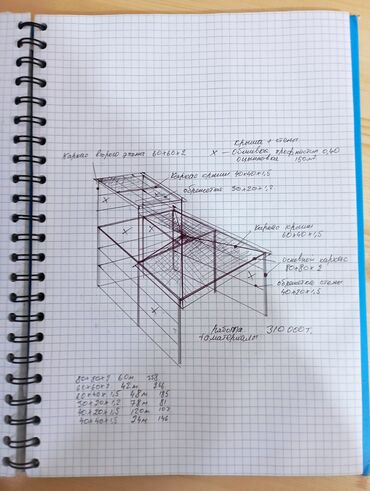 крыша + стены
х - Обшивка профнастил 0,40
оцинковка 150м²
Каркас второго этажа 60×60×2
Каркас крыши 40×40×1,5
обрешетка 30×20×1,2
Каркас крыши
60×40×1,5
основной каркас
80×80×2
обрешетка стены
40×20×1,5
работа
+ материалы 310 000 т.
80×80×2 60м
60×60×2 42м 246
60×40×1,5 48м 185
30×20×1,2 78м 81
40×20×1,5 120м 107
40×40×1,5 24м 146